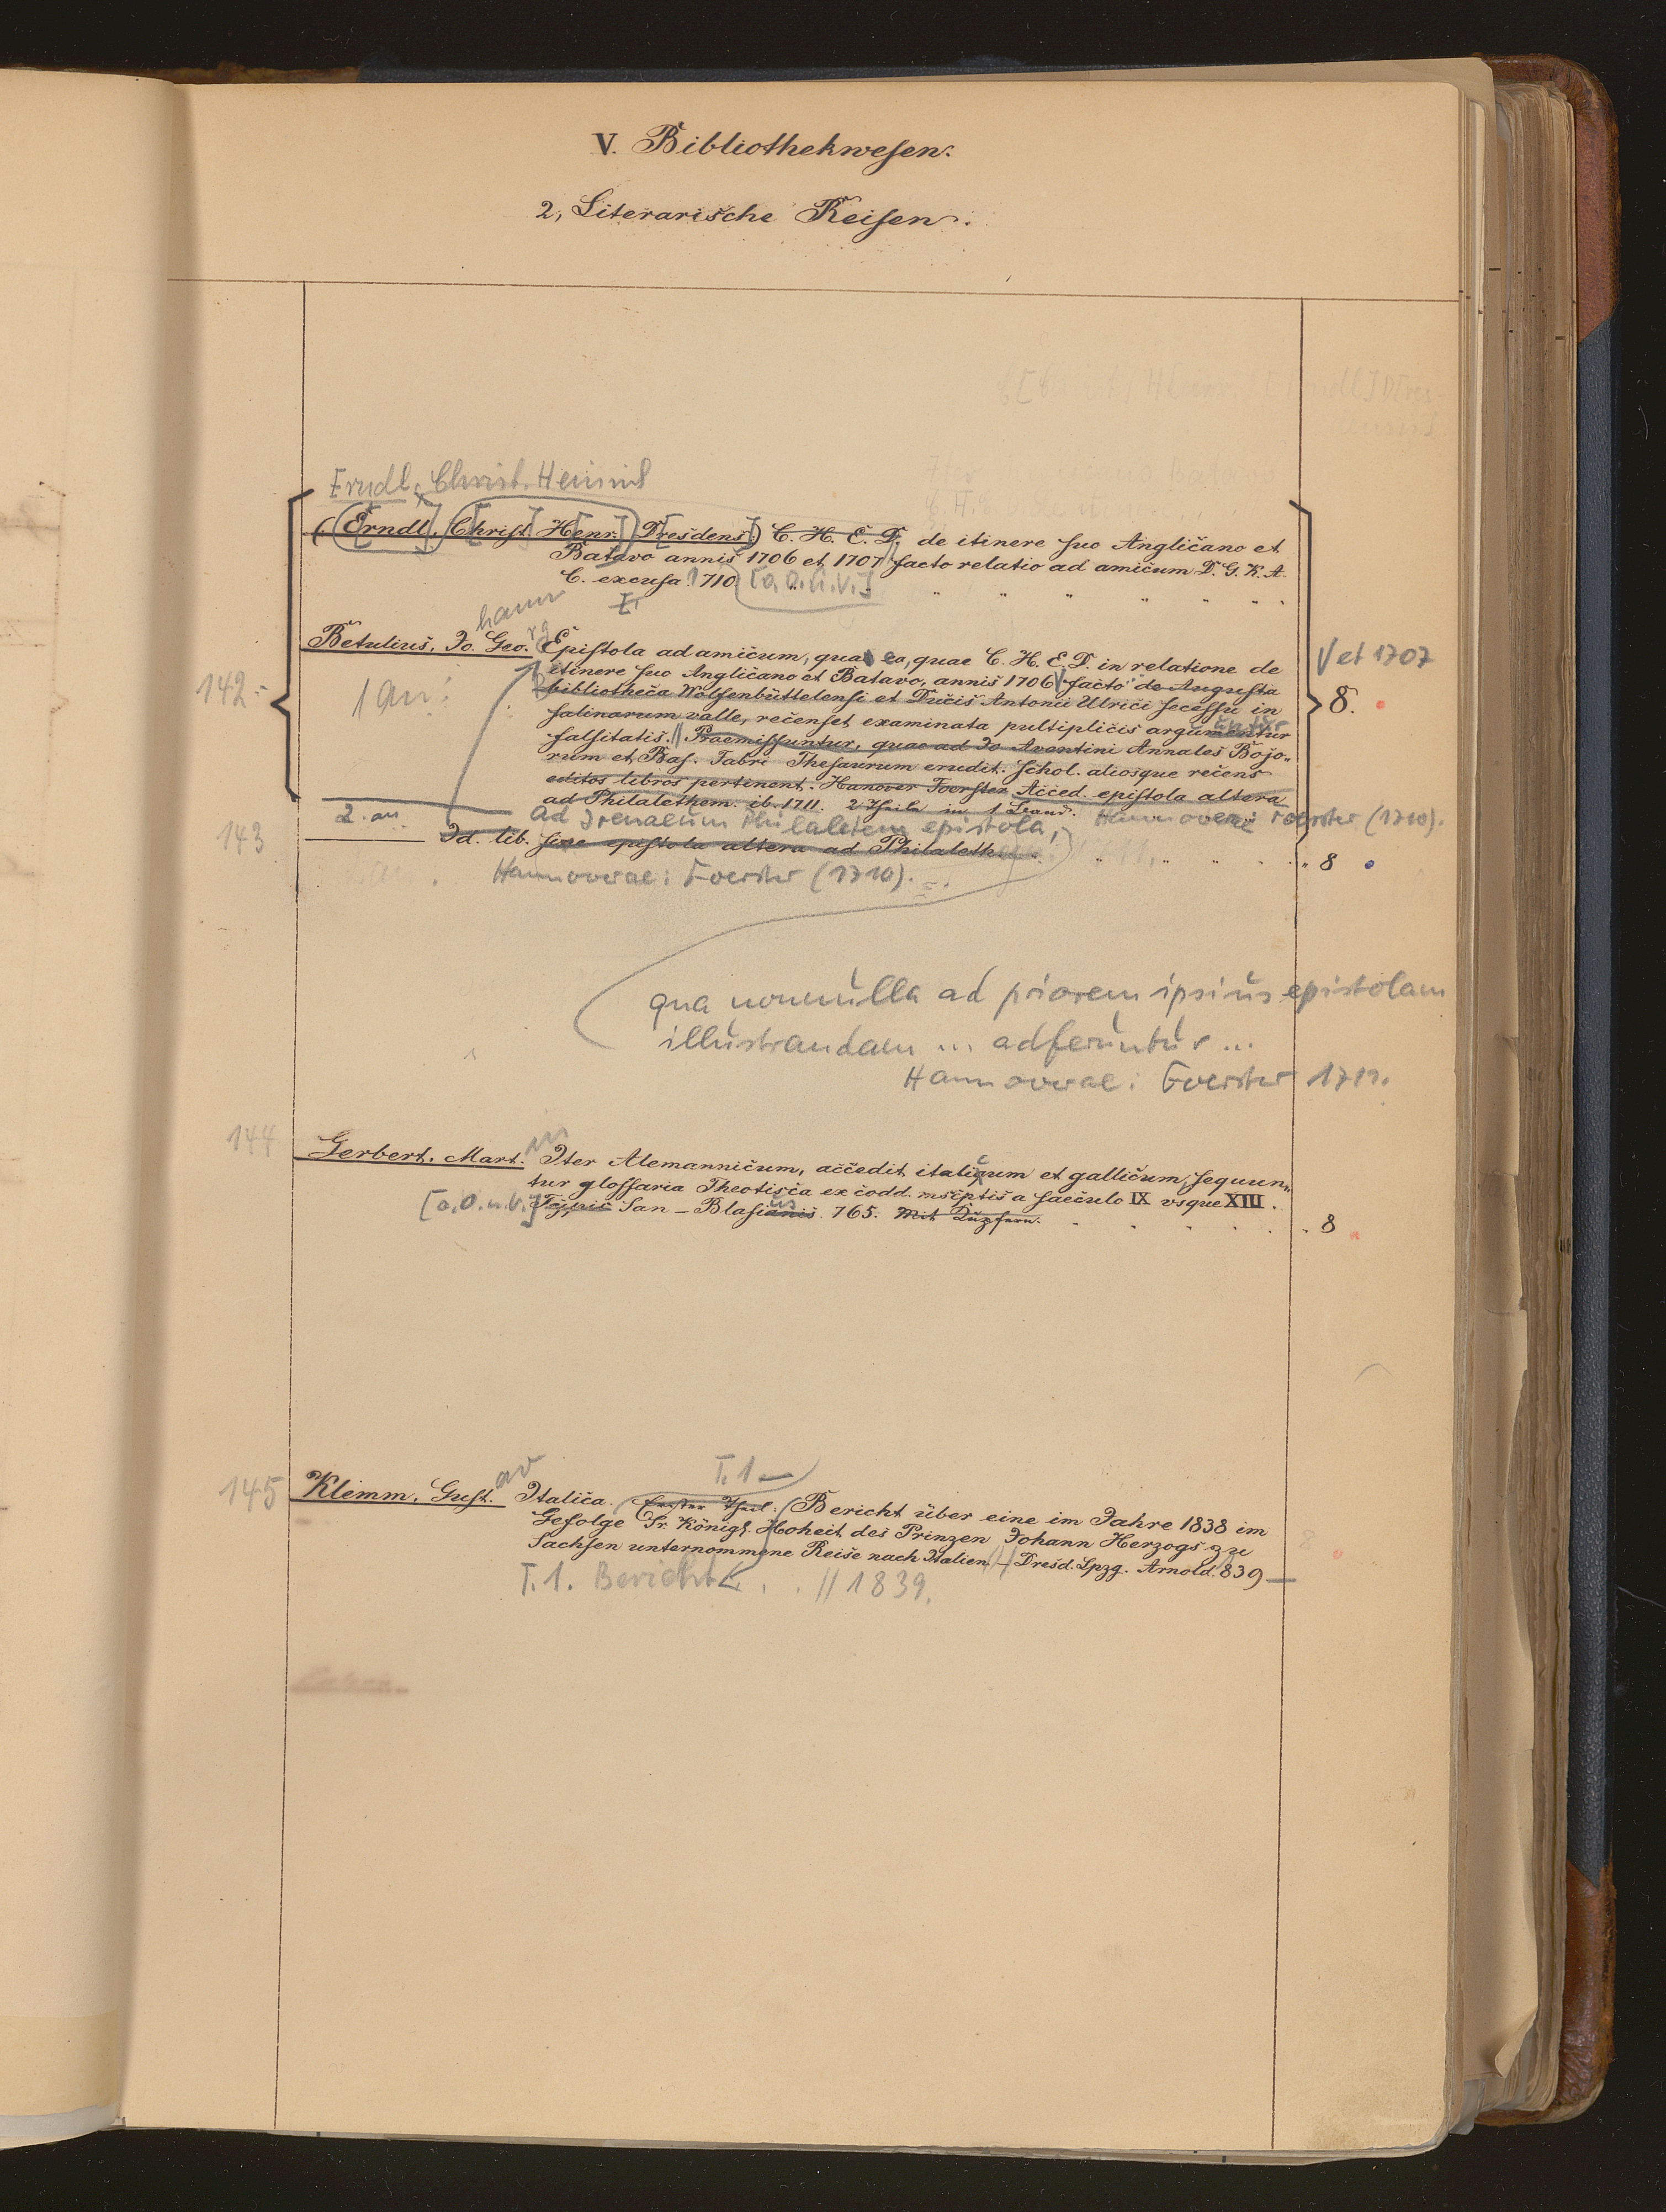 V. Bibliothekwesen.
2, Literarische Reisen.
Erndl, Christ. Heinrich
(Erndl, Christ. Henr. Dresdens.) C. H. E. D. de itinere suo Anglicano et
Batavo annis 1706 et 1707 facto relatio ad amicum D. G. K. A.
C. excusa 1710 [o.O.u.V.]
hann
rg
Betulius, Jo. Geo. Epistola ad amicum, qua ea, quae C. H. E. D. in relatione de
itinere suo Anglicano et Batavo, annis 1706 facto de Augusta
V et 1707
142
1 an:
bibliotheca Wolfenbüttelensi et Ducis Antonii Ulrici secessu in
8.
salinarum valle, recenset examinata pultiplicis argumentur
untur
falsitatis. Praemissuntur, quae ad Jo Aventini Annales Bojo„
rum et Bas. Fabri Thesaurum erudit. schol. aliosque recens
editos libros pertinent. Hanover Foerster Acced. epistola altera
ad Philalethem. ib. 1711. 2 Theile in 1 Lrand.
Hannoverae Foerster (1710).
2. an
ad Irenaeum Philaletem epistola,
143
Id. lib. sive epistola altera ad Philaleth
8
Hannoverae: Foerster (1710).
qua nonnulla ad priorem ipsius epistolam
illustrandam ... adferuntur ...
Hannoverae: Foerster 1712.
144
Gerbert, Mart. Iter Alemannicum, accedit italicum et gallicum, sequun„
in
tur glossaria Theotisca ex codd. mscptis a saeculo IX vsque XIII.
[o.O.u.V.] Typis San-Blasianis 765. Mit Kupfern.
us
8
T. 1
145
av
Klemm, Gust. Italica. Erster Theil. Bericht über eine im Jahre 1838 im
Gefolge Sr. Königl. Hoheit des Prinzen Johann Herzogs zu
Sachsen unternommene Reise nach Italien - Dresd. Lpzg. Arnold. 839
8
T. 1. Bericht . . // 1839.